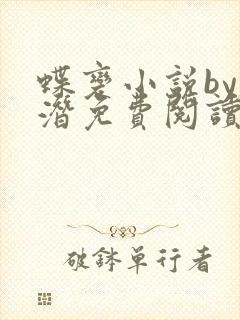 蝶変小説by
潛免費閱讀
破鉢单行者